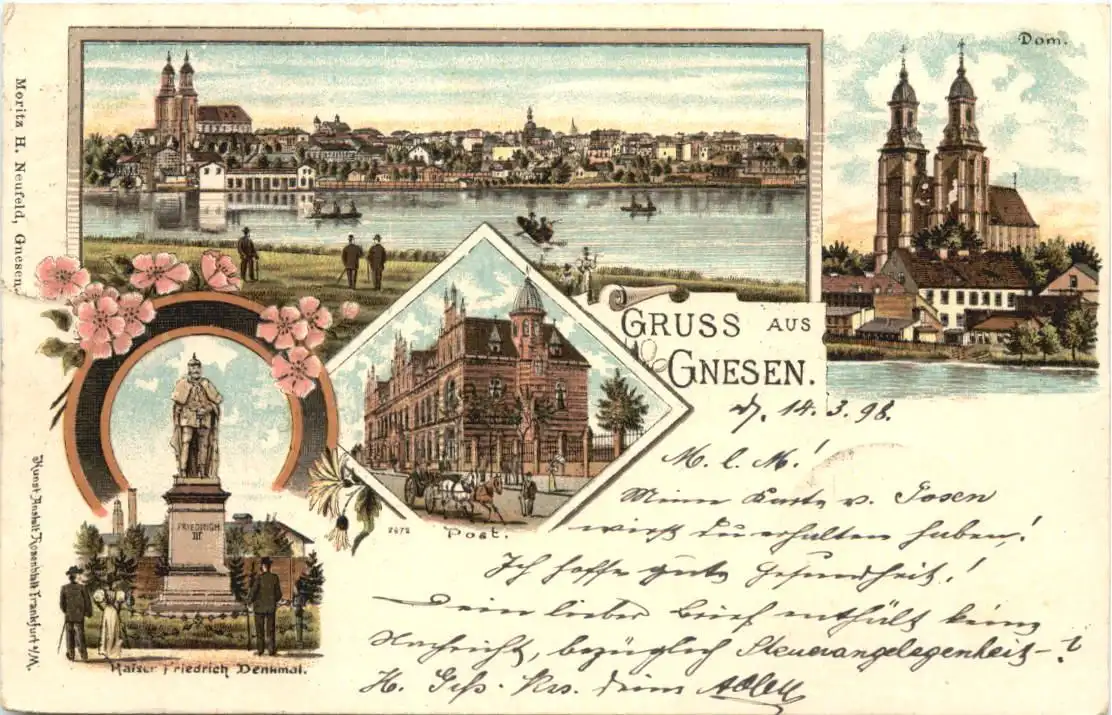 Moritz H. Neufeld, Gnesen.
Kunst-Anstalt Rosenblatt Frankfurt a/M.
Dom.
GRUSS AUS
GNESEN.
FRIEDRICH
III
Kaiser Friedrich Denkmal.
2672
Post.
d. 14.3.98.
M. l. M.!
Meine Karte v. Posen
wirst Du erhalten haben!
Ich hoffe gute Gesundheit!
Dein lieber Brief enthält keine
Nachricht, bezüglich Steuerangelegenheit-?
H. Grß. Kss. Deine